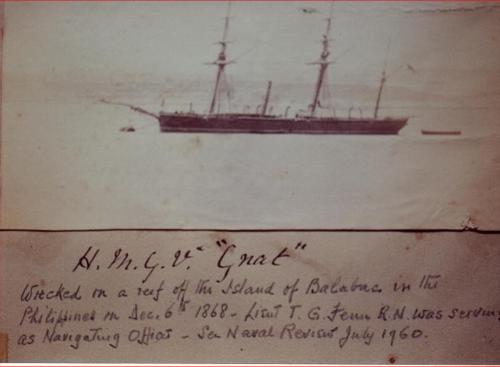 H. M. G. V. "Gnat"
Wrecked on a reef off the Island of Balabac in the
Philippines on Dec. 6th 1868 - Lieut T. G. Fenn R.N. was serving
as Navigating Officer - See Naval Review July 1960.